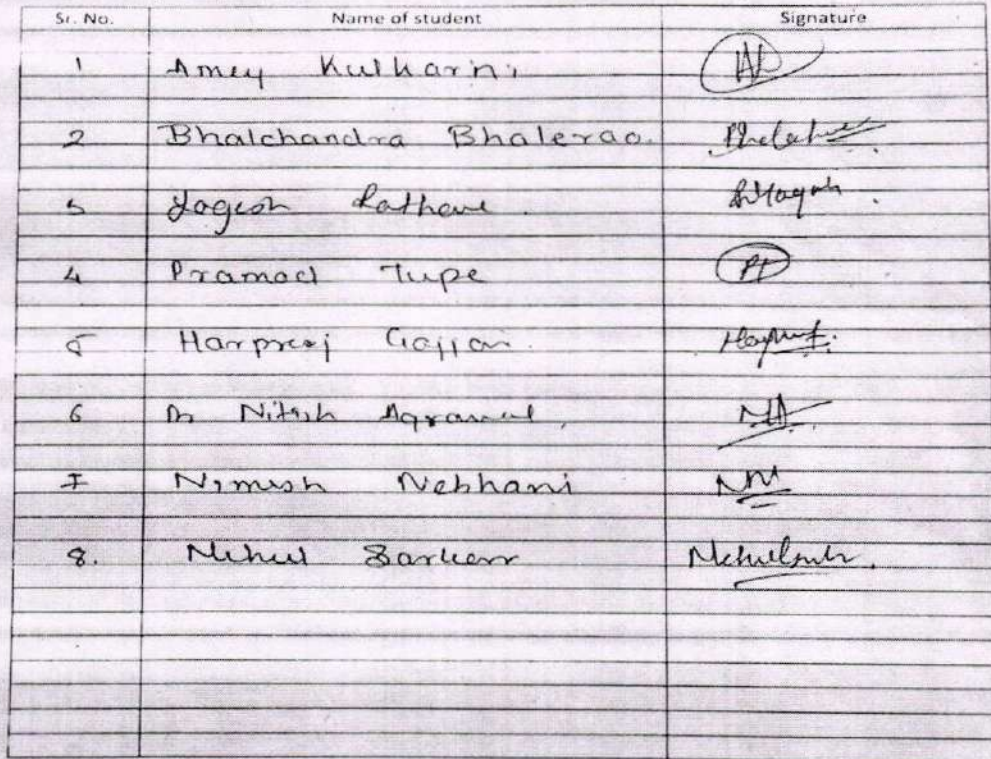 Sr. No. Name of student Signature
1 Amey Kulkarni
2 Bhalchandra Bhalerao.
3 Yogesh Rathave.
4 Pramod Tupe PT
5 Harpreej Gajjan.
6 Dr Nitish Agrawal, NA
7 Nimesh Nebhani NN
8. Mehul Sarkar